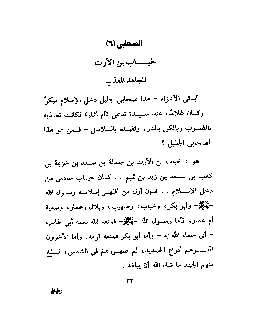 الصحابي (٦)
خباب بن الأرت
المجاهد المعذب
هذا صحابي جليل دخل الإسلام مبكرًا
وكان غلامًا عند سيدة تدعى «أم أنمار» فكانت تعذبه
بالضرب وبالكي بالنار، وتقيده بالسلاسل – فمن هو هذا
الصحابي الجليل ؟
هو : خباب بن الأرت بن جندلة بن سعد بن خزيمة بن
كعب بن سعد بن زيد بن تميم .. كان خباب سادس من
دخل الإسلام .. فكان أول من أظهر إسلامه رسول الله
-ﷺ- وأبو بكر، وخباب، وصهيب، وبلال، وعمار، وسمية
أم عمار، فأما رسول الله -ﷺ- فمنعه الله بعمه أبي طالب،
وأما أبو بكر فمنعه قومه، وأما الآخرون
أدراع الحديد، ثم صهروهم في الشمس، فبلغ
منهم الجهد ما شاء الله أن يبلغ .